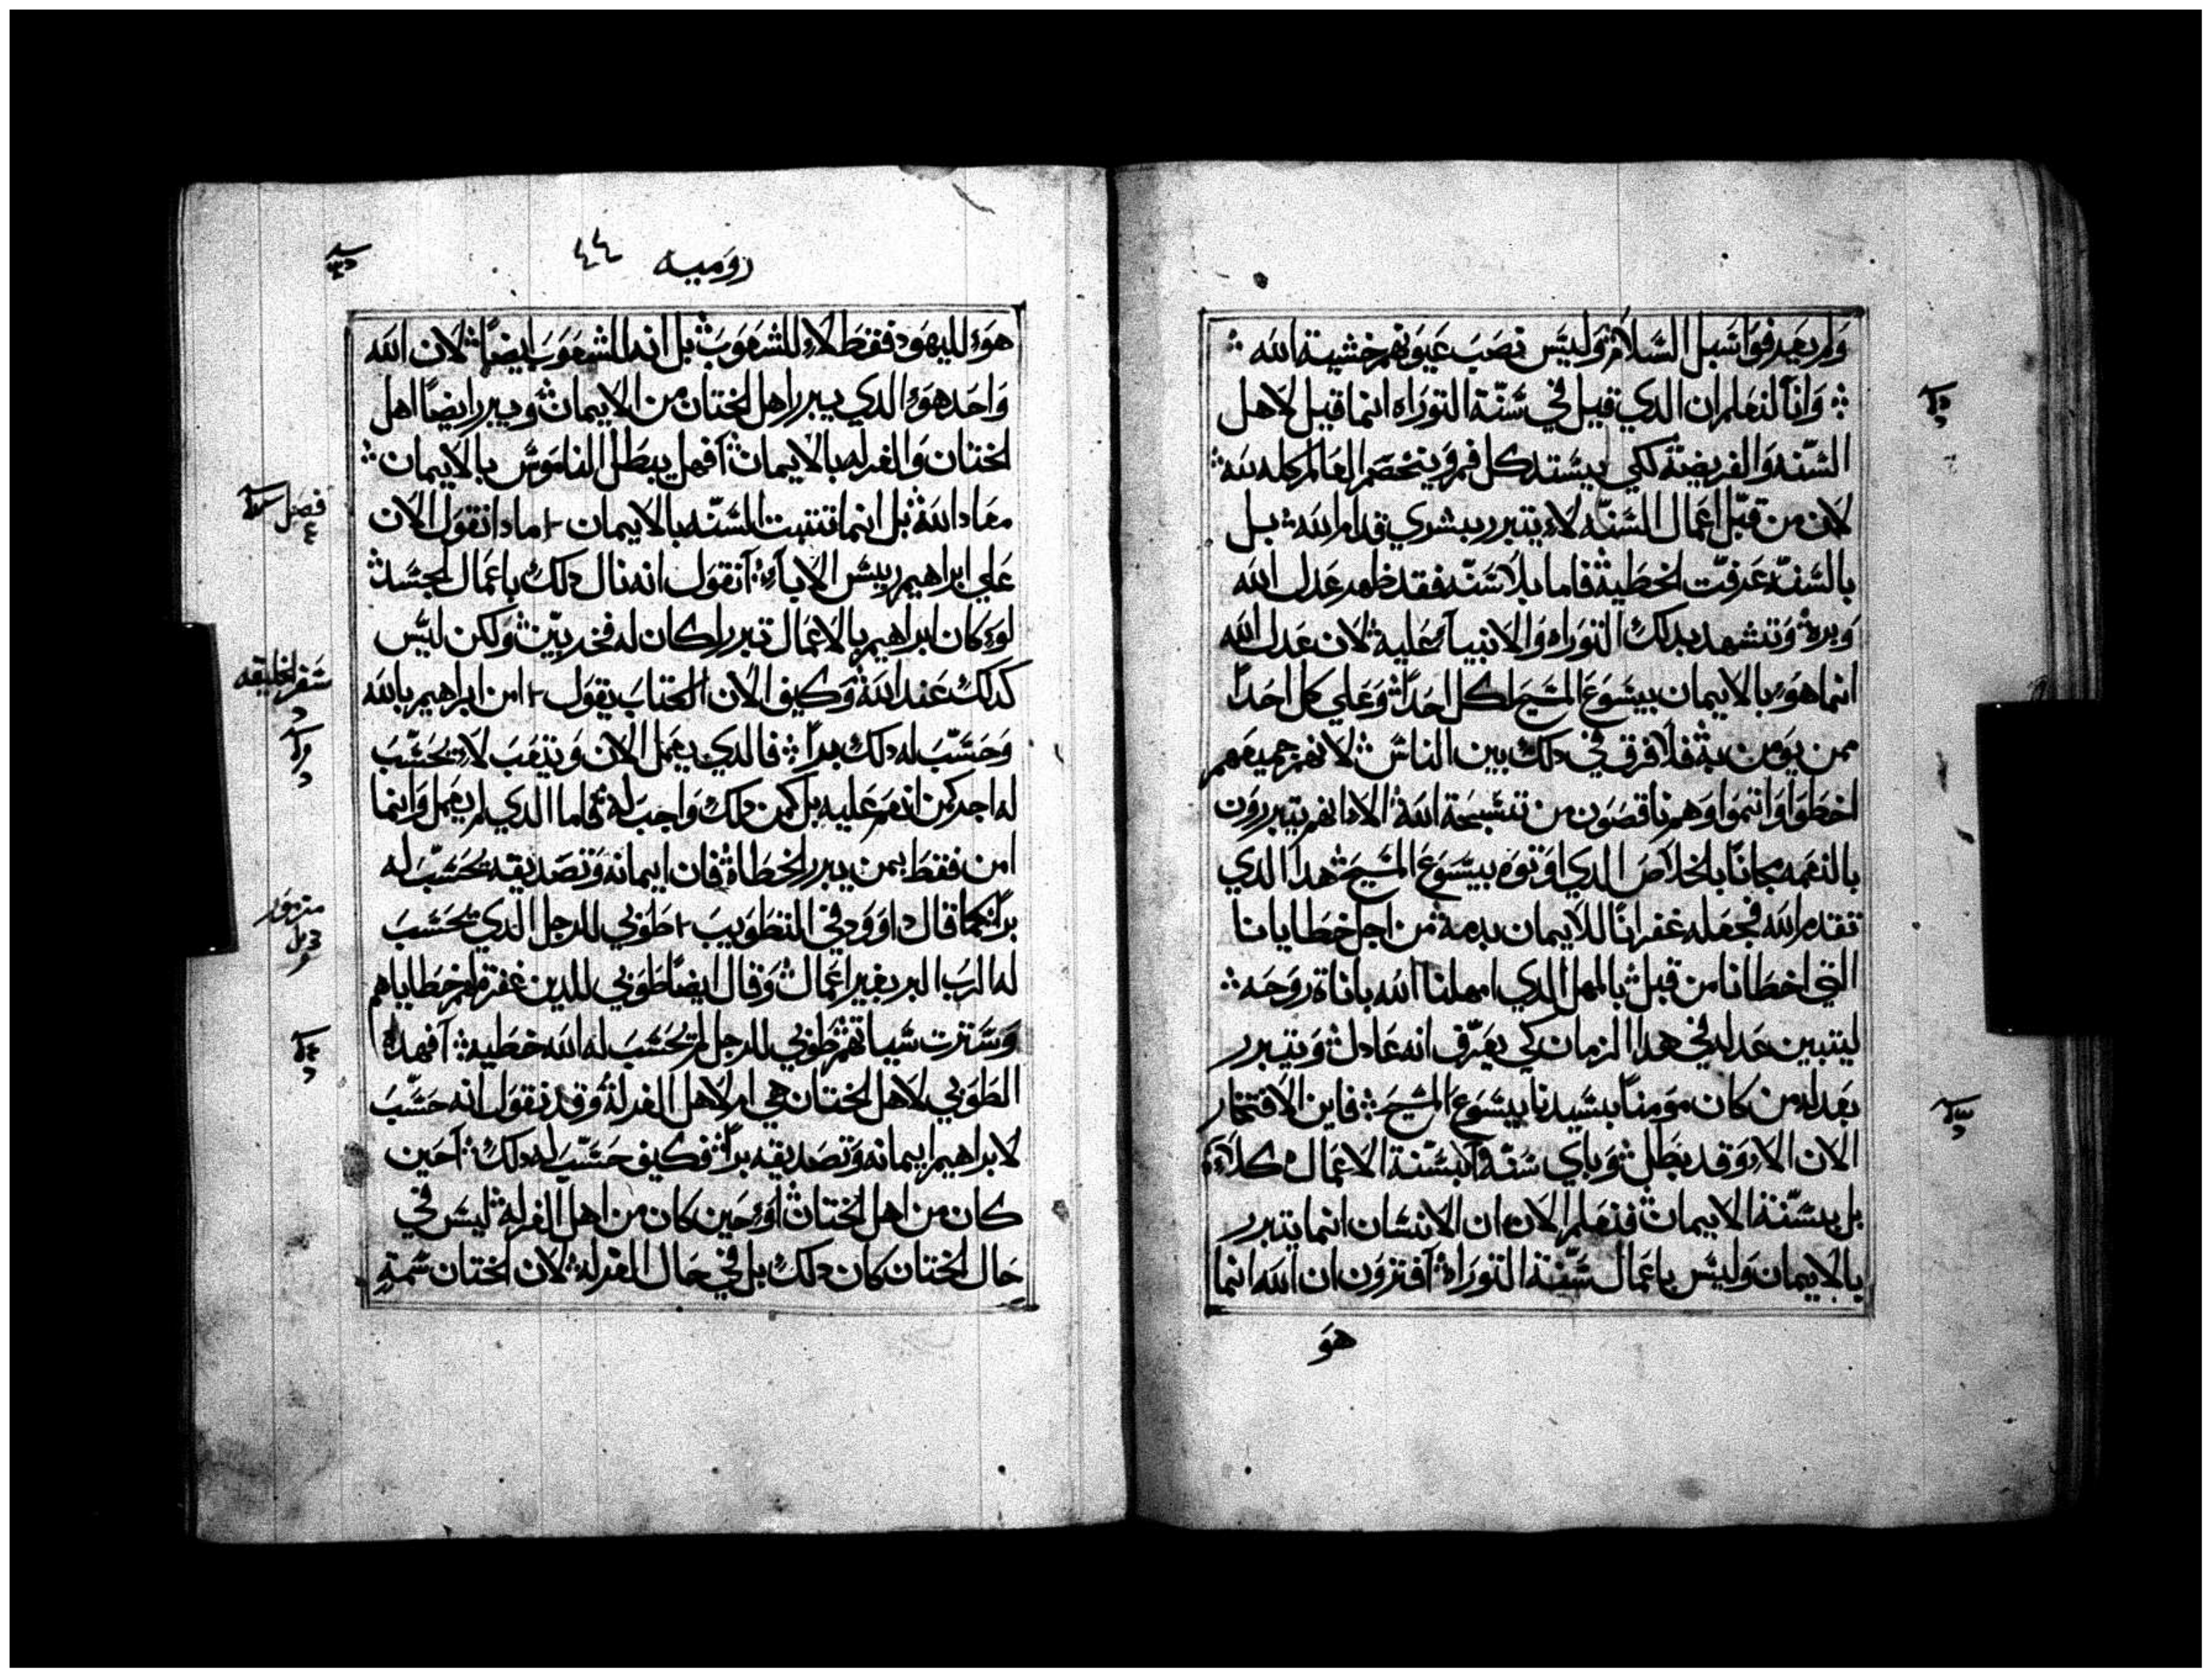 ولم يعرفوا سبل السلامة وليس نصب عيونهم خشية الله
وانا لنعلم ان الدي قيل في سنة التوراه انما قيل لاهل
السنه والفريضة لكي يستد كل فم وينخصم العالم كله لله
لان من قبل اعمال السنه لا يتبرر بشري قدام الله بل
بالسنه عرفت الخطية فاما بلا سنه فقد ظهر عدل الله
وبره وتشهد بدلك التوراه والانبيآء علية لان عدل الله
انما هو بالايمان بيسوع المسيح لكل احداً وعلي كل احداً
ممن يومن به فلا فرق في دلك بين الناس لانهم جميعهم
اخطوا واثموا وهم ناقصون من تسبحة الله الا انهم يتبررون
بالنعمه مجاناً بالخلاص الدي اوتوه بيسوع المسيح هدا الدي
تقدم الله فجعله غفراناً للايمان بدمه من اجل خطايانا
التي اخطانا من قبل بالمهل الدي امهلنا الله باناة روحه
ليتبين عدله في هدا الزمان كي يعرف انه عادل ويتبرر
بعدله من كان مومناً بسيدنا يسوع المسيح فاين الافتخار
الان الا وقد بطل وباي سنه آبسنة الاعمال كلا
بل بسنة الايمان فنعلم الان ان الانسان انما يتبرر
بالايمان وليس باعمال سنة التوراة آفترون ان الله انما
هو
روميه ٤٤
هو لليهود فقط لا للشعوب بل انه للشعوب ايضاً لان الله
واحد هو الدي يبرر اهل الختان من الايمان ويبرر ايضاً اهل
الختان والغرله بالايمان آفهل يبطل الناموس بالايمان
معاد الله بل انما تثبت السنه بالايمان مادا نقول الان
علي ابراهيم رييس الابآء آنقول انه نال دلك باعمال الجسد
لو كان ابراهيم بالاعمال تبرر لكان له فخر بين ولكن ليس
كدلك عند الله وكيف الان الكتاب يقول امن ابراهيم بالله
وحسب له دلك براً فالدي يعمل الان ويتعب لا تحسب
له اجر كمن انعم عليه بل كمن دلك واجب له فاما الدي لم يعمل وانما
امن فقط بمن يبرر الخطاة فان ايمانه وتصديقه يحسب له
براً كما قال داوود في التطويب طوبي للرجل الدي يحسب
له الرب البر بغير اعمال وقال ايضاً طوبي للدين غفرت لهم خطاياهم
وسترت سياتهم طوبي للرجل لم تحسب له الله خطيه آفهدا
الطوبي لاهل الختان هي ام لاهل الغرلة وقد نقول انه حسب
لابراهيم ايمانه وتصديقه براً فكيف حسب له دلك آحين
كان من اهل الختان او حين كان من اهل الغرلة ليس في
حال الختان كان دلك بل في حال الغرلة لان الختان سمة
فصل
٤
سفر الخليقه
مزمور